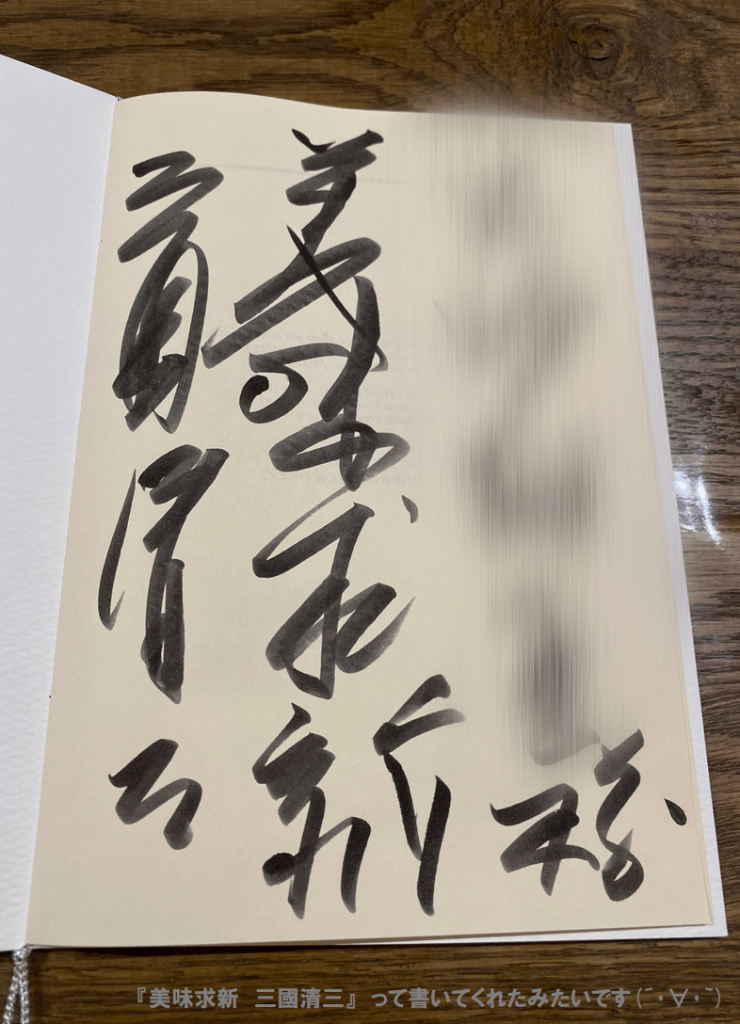 様
美味求新
三國清三
『美味求新 三國清三』って書いてくれたみたいです(¯・∀・¯)